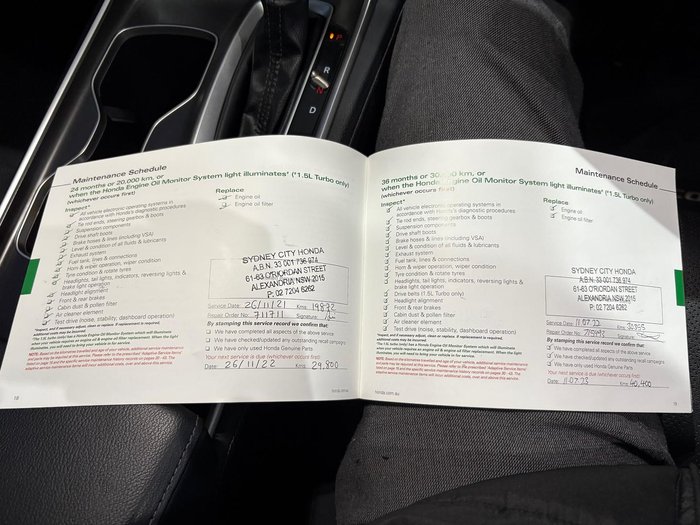 P
R
N
D
Maintenance Schedule
24 months or 20,000 km, or
when the Honda Engine Oil Monitor System light illuminates* (*1.5L Turbo only)
(whichever occurs first)
Inspect*
All vehicle electronic operating systems in
accordance with Honda's diagnostic procedures
Tie rod ends, steering gearbox & boots
Suspension components
Drive shaft boots
Brake hoses & lines (including VSA)
Level & condition of all fluids & lubricants
Exhaust system
Fuel tank, lines & connections
Horn & wiper operation, wiper condition
Tyre condition & rotate tyres
Headlights, tail lights, indicators, reversing lights &
brake light operation
Headlight alignment
Front & rear brakes
Cabin dust & pollen filter
Air cleaner element
Test drive (noise, stability, dashboard operation)
Replace
Engine oil
Engine oil filter
SYDNEY CITY HONDA
A.B.N. 33 001 736 974
61-63 O'RIORDAN STREET
ALEXANDRIA NSW 2015
P: 02 7204 6262
Service Date: 26/11/21 Kms 19872
Repair Order No: 711711 Signature
By stamping this service record we confirm that:
We have completed all aspects of the above service
We have checked/updated any outstanding recall campaigns
We have only used Honda Genuine Parts
Your next service is due (whichever occurs first):
Date: 26/11/22 Kms: 29,800
18
Maintenance Schedule
36 months or 30, km, or
when the Honda Engine Oil Monitor System light illuminates* (*1.5L Turbo only)
(whichever occurs first)
Inspect*
All vehicle electronic operating systems in
accordance with Honda's diagnostic procedures
Tie rod ends, steering gearbox & boots
Suspension components
Drive shaft boots
Brake hoses & lines (including VSA)
Level & condition of all fluids & lubricants
Exhaust system
Fuel tank, lines & connections
Horn & wiper operation, wiper condition
Tyre condition & rotate tyres
Headlights, tail lights, indicators, reversing lights &
brake light operation
Drive belts (1.5L Turbo only)
Headlight alignment
Front & rear brakes
Cabin dust & pollen filter
Air cleaner element
Test drive (noise, stability, dashboard operation)
Replace
Engine oil
Engine oil filter
SYDNEY CITY HONDA
A.B.N. 33 001 736 974
61-63 O'RIORDAN STREET
ALEXANDRIA NSW 2015
P: 02 7204 6262
Service Date: 11.07.23 Kms
Repair Order No: Signature
By stamping this service record we confirm that:
We have completed all aspects of the above service
We have checked/updated any outstanding recall campaigns
We have only used Honda Genuine Parts
Your next service is due (whichever occurs first):
Date: 11.07.23 Kms: 40,400
honda.com.au